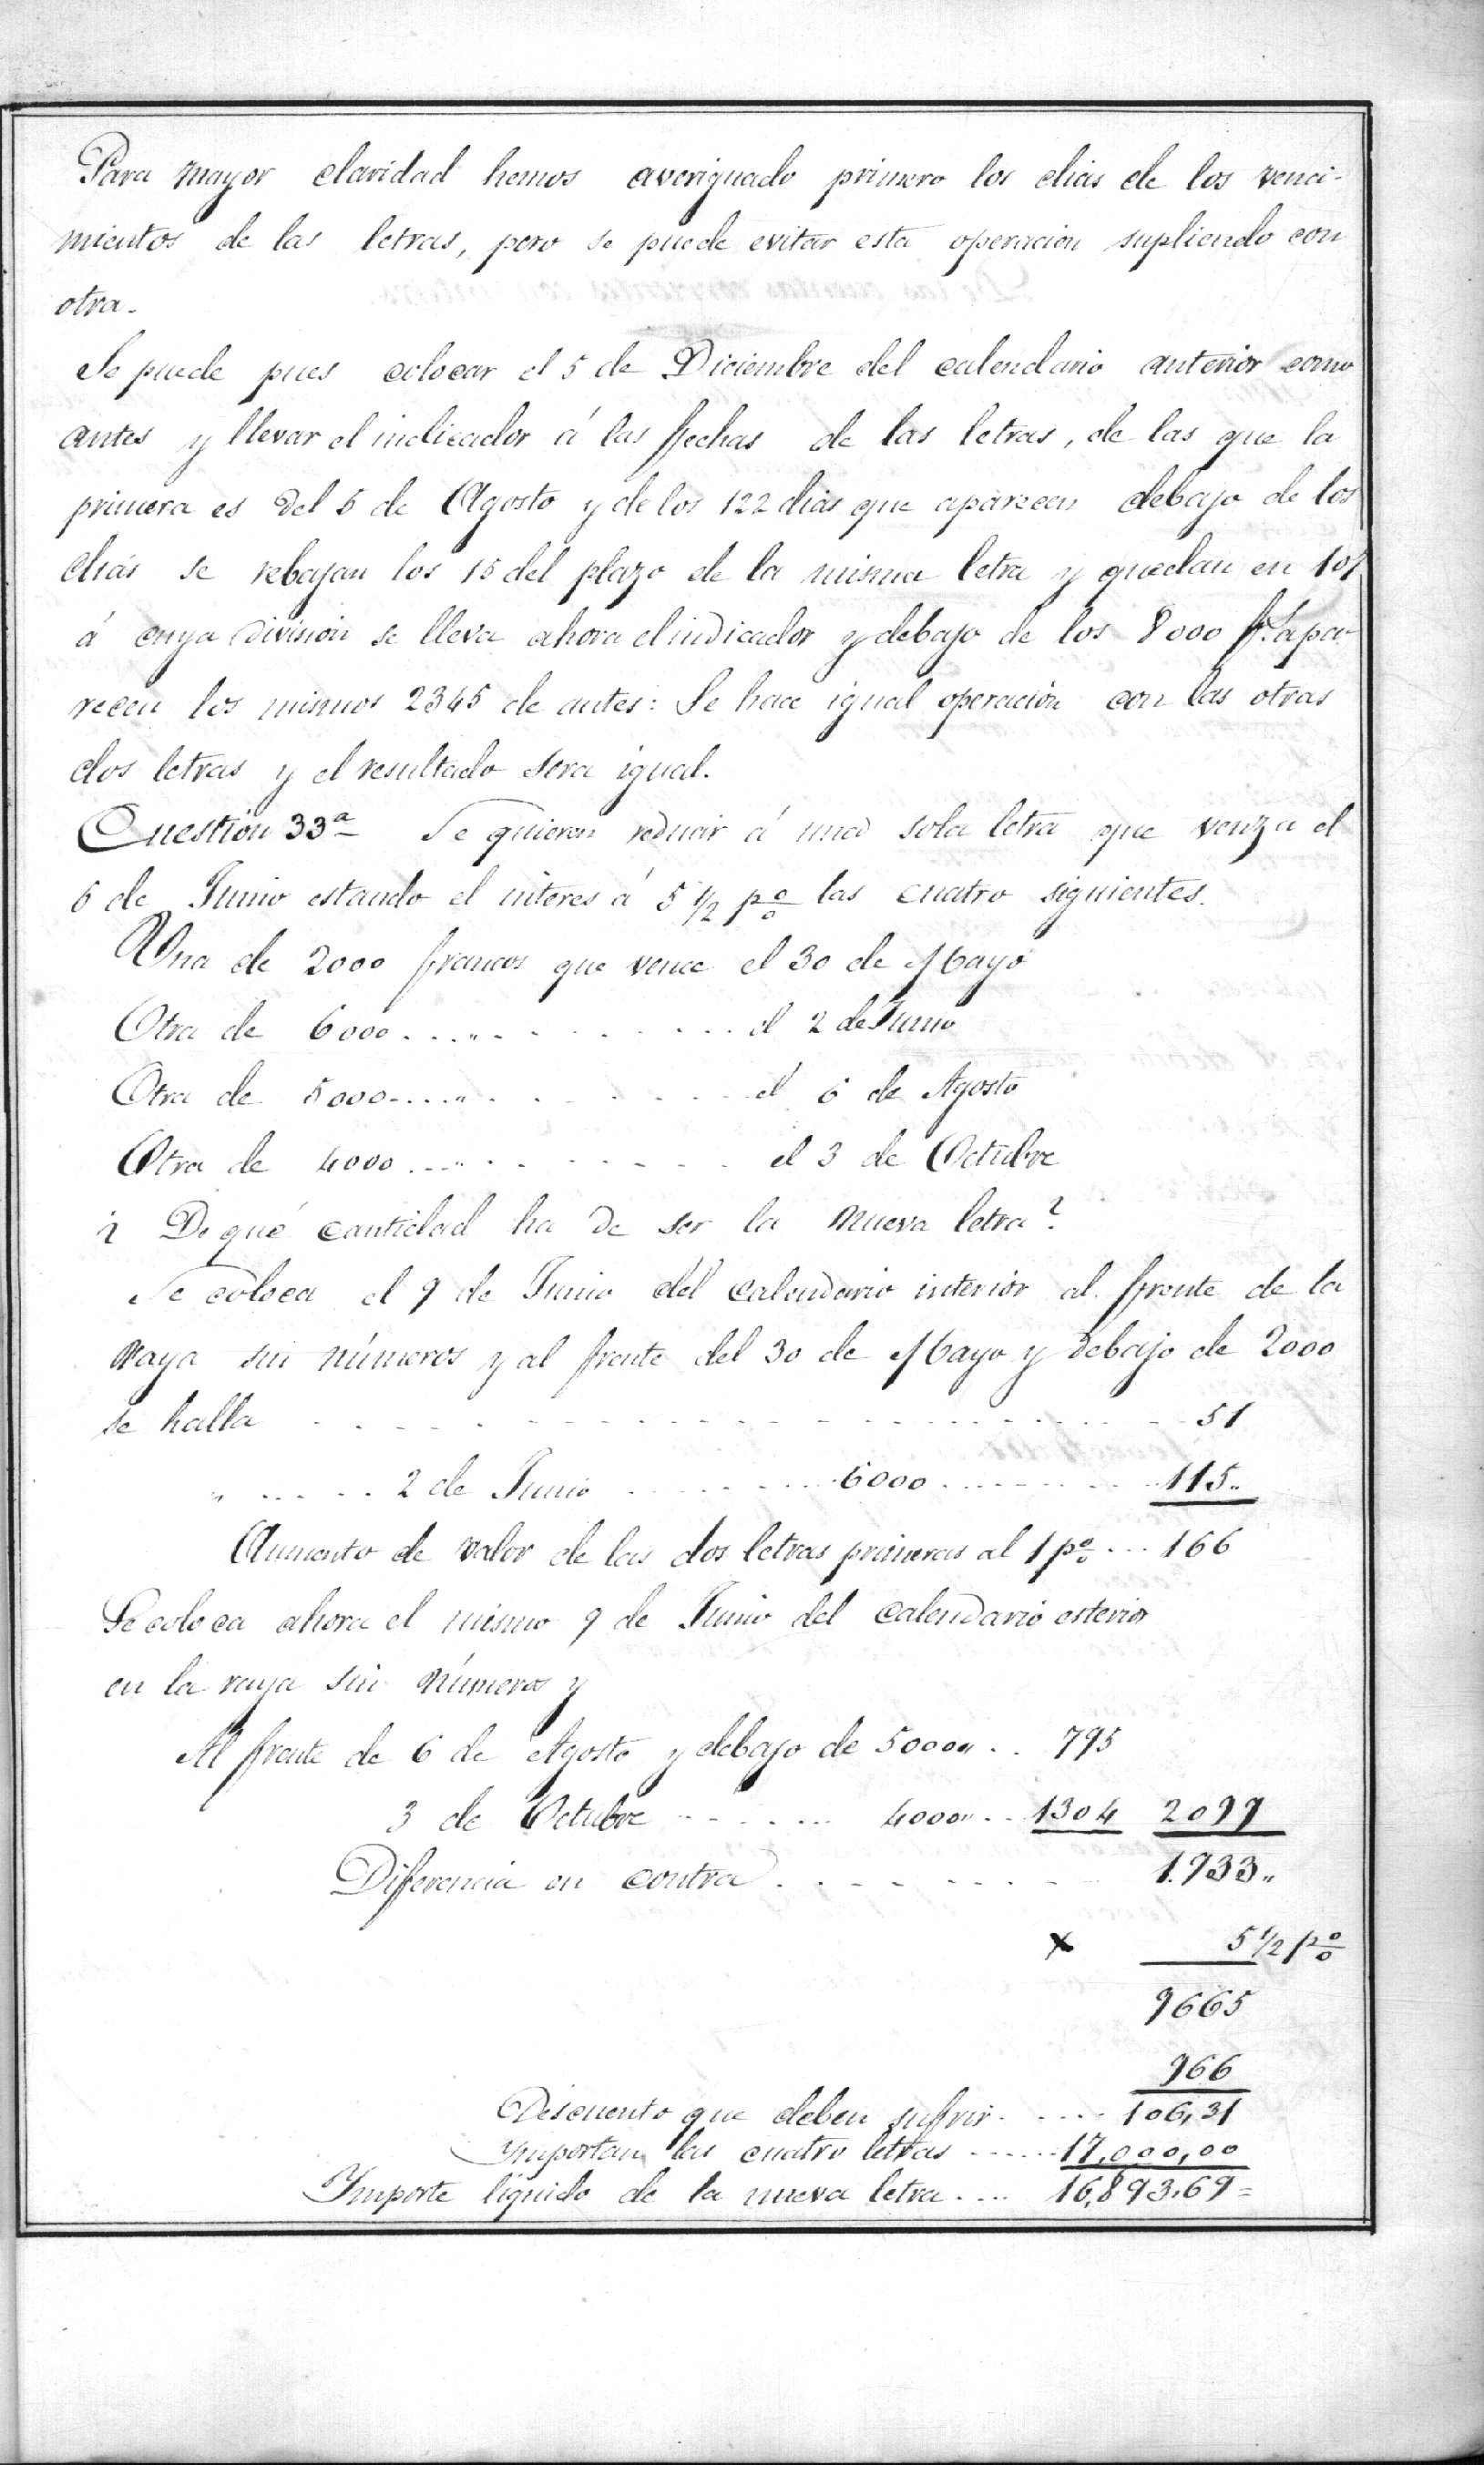 Para mayor claridad hemos averiguado primero los dias de los venci-
mientos de las letras, pero se puede evitar esta operacion supliendo con
otra.
Se puede pues colocar el 5 de Diciembre del calendario anterior como
antes y llevar el indicador á las fechas de las letras, de las que la
primera es del 5 de Agosto y de los 122 dias que aparecen debajo de los
dias se rebajan los 15 del plazo de la misma letra y quedan en 107
á cuya division se lleva ahora el indicador y debajo de los 8000 f.s apa-
recen los mismos 2345 de antes: Se hace igual operación con las otras
dos letras y el resultado sera igual.
Cuestion 33ª Se quieren reducir á una sola letra que venza el
6 de Junio estando el interes á 5 1/2 p% las cuatro siguientes.
Una de 2000 francos que vence el 30 de Mayo
Otra de 6000 . . . „ . . . . . . . . . el 2 de Junio
Otra de 5000 . . . . „ . . . . . . . . el 6 de Agosto
Otra de 4000 . . . „ . . . . . . . . . el 3 de Octubre
¿ De qué cantidad ha de ser la nueva letra?
Se coloca el 9 de Junio del calendario interior al frente de la
raya sin números y al frente del 30 de Mayo y debajo de 2000
se halla . . . . . . . . . . . . . . . . . . 51
„ . . . . . 2 de Junio . . . . . . . 6000 . . . . . . . . 115„
Aumento de valor de las dos letras primeras al 1 p% . . . 166
Se coloca ahora el mismo 9 de Junio del calendario esterior
en la raya sin números y
Al frente de 6 de Agosto y debajo de 5000„ . . 795
3 de Octubre . . . . . . . 4000„ . . 1304 2099
Diferencia en contra . . . . . . . . . 1.933„
x 5 1/2 p%
9665
966
Descuento que deben sufrir . . . . . 106,31
Importan las cuatro letras . . . . . 17.000,00
Importe líquido de la nueva letra . . . . 16,893,69 =